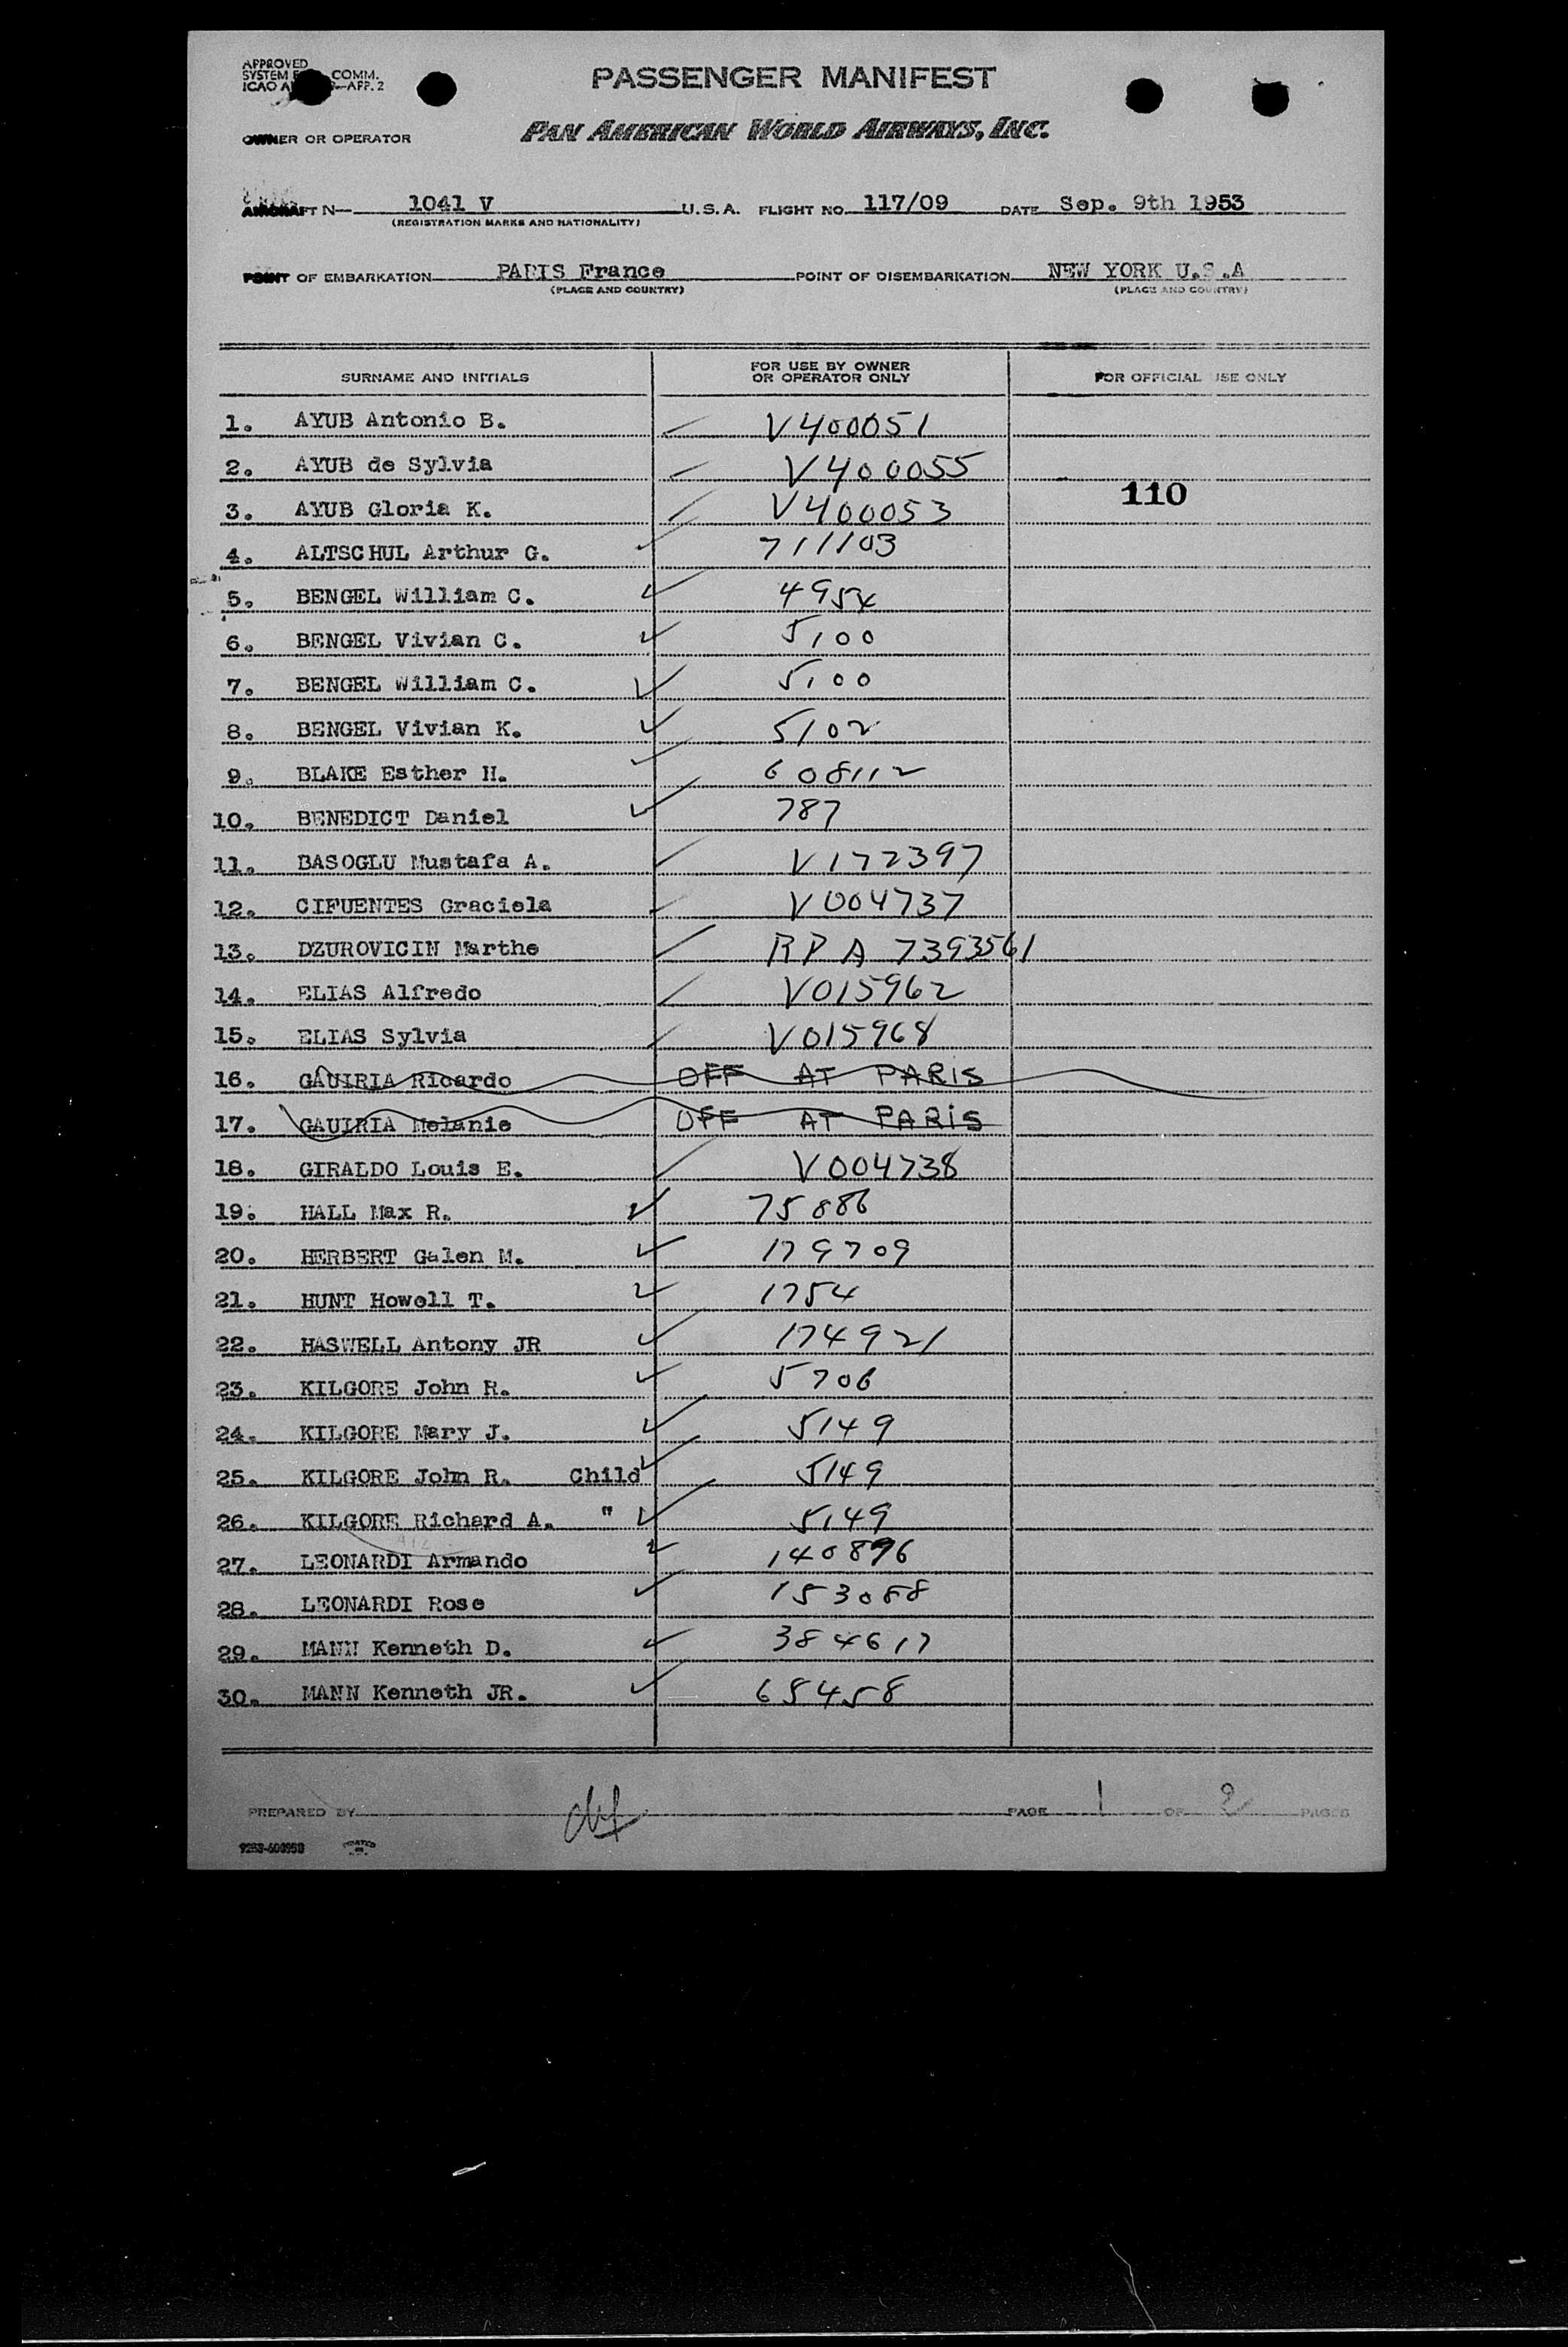 APPROVED
SYSTEM COMM.
ICAO —APP. 2
PASSENGER MANIFEST
OWNER OR OPERATOR
PAN AMERICAN WORLD AIRWAYS, INC.
AIRCRAFT N— 1041 V U.S.A. FLIGHT NO. 117/09 DATE Sep. 9th 1953
(REGISTRATION MARKS AND NATIONALITY)
POINT OF EMBARKATION PARIS France POINT OF DISEMBARKATION NEW YORK U.S.A
(PLACE AND COUNTRY) (PLACE AND COUNTRY)
SURNAME AND INITIALS FOR USE BY OWNER OR OPERATOR ONLY FOR OFFICIAL USE ONLY
1. AYUB Antonio B. V400051
2. AYUB de Sylvia V400055
110
3. AYUB Gloria K. V400053
4. ALTSCHUL Arthur G. 711103
5. BENGEL William C. 4954
6. BENGEL Vivian C. 5100
7. BENGEL William C. 5100
8. BENGEL Vivian K. 5102
9. BLAKE Esther H. 608112
10. BENEDICT Daniel 787
11. BASOGLU Mustafa A. V172397
12. CIFUENTES Graciela V004737
13. DZUROVICIN Marthe RPA 7393561
14. ELIAS Alfredo V015962
15. ELIAS Sylvia V015968
16. GAUIRIA Ricardo OFF AT PARIS
17. GAUIRIA Melanie OFF AT PARIS
18. GIRALDO Louis E. V004738
19. HALL Max R. 75886
20. HERBERT Galen M. 179709
21. HUNT Howell T. 1754
22. HASWELL Antony JR 174921
23. KILGORE John R. 5706
24. KILGORE Mary J. 5149
25. KILGORE John R. Child 5149
26. KILGORE Richard A. " 5149
27. LEONARDI Armando 140896
28. LEONARDI Rose 153088
29. MANN Kenneth D. 384617
30. MANN Kenneth JR. 65458
PREPARED BY PAGE 1 OF 2 PAGES